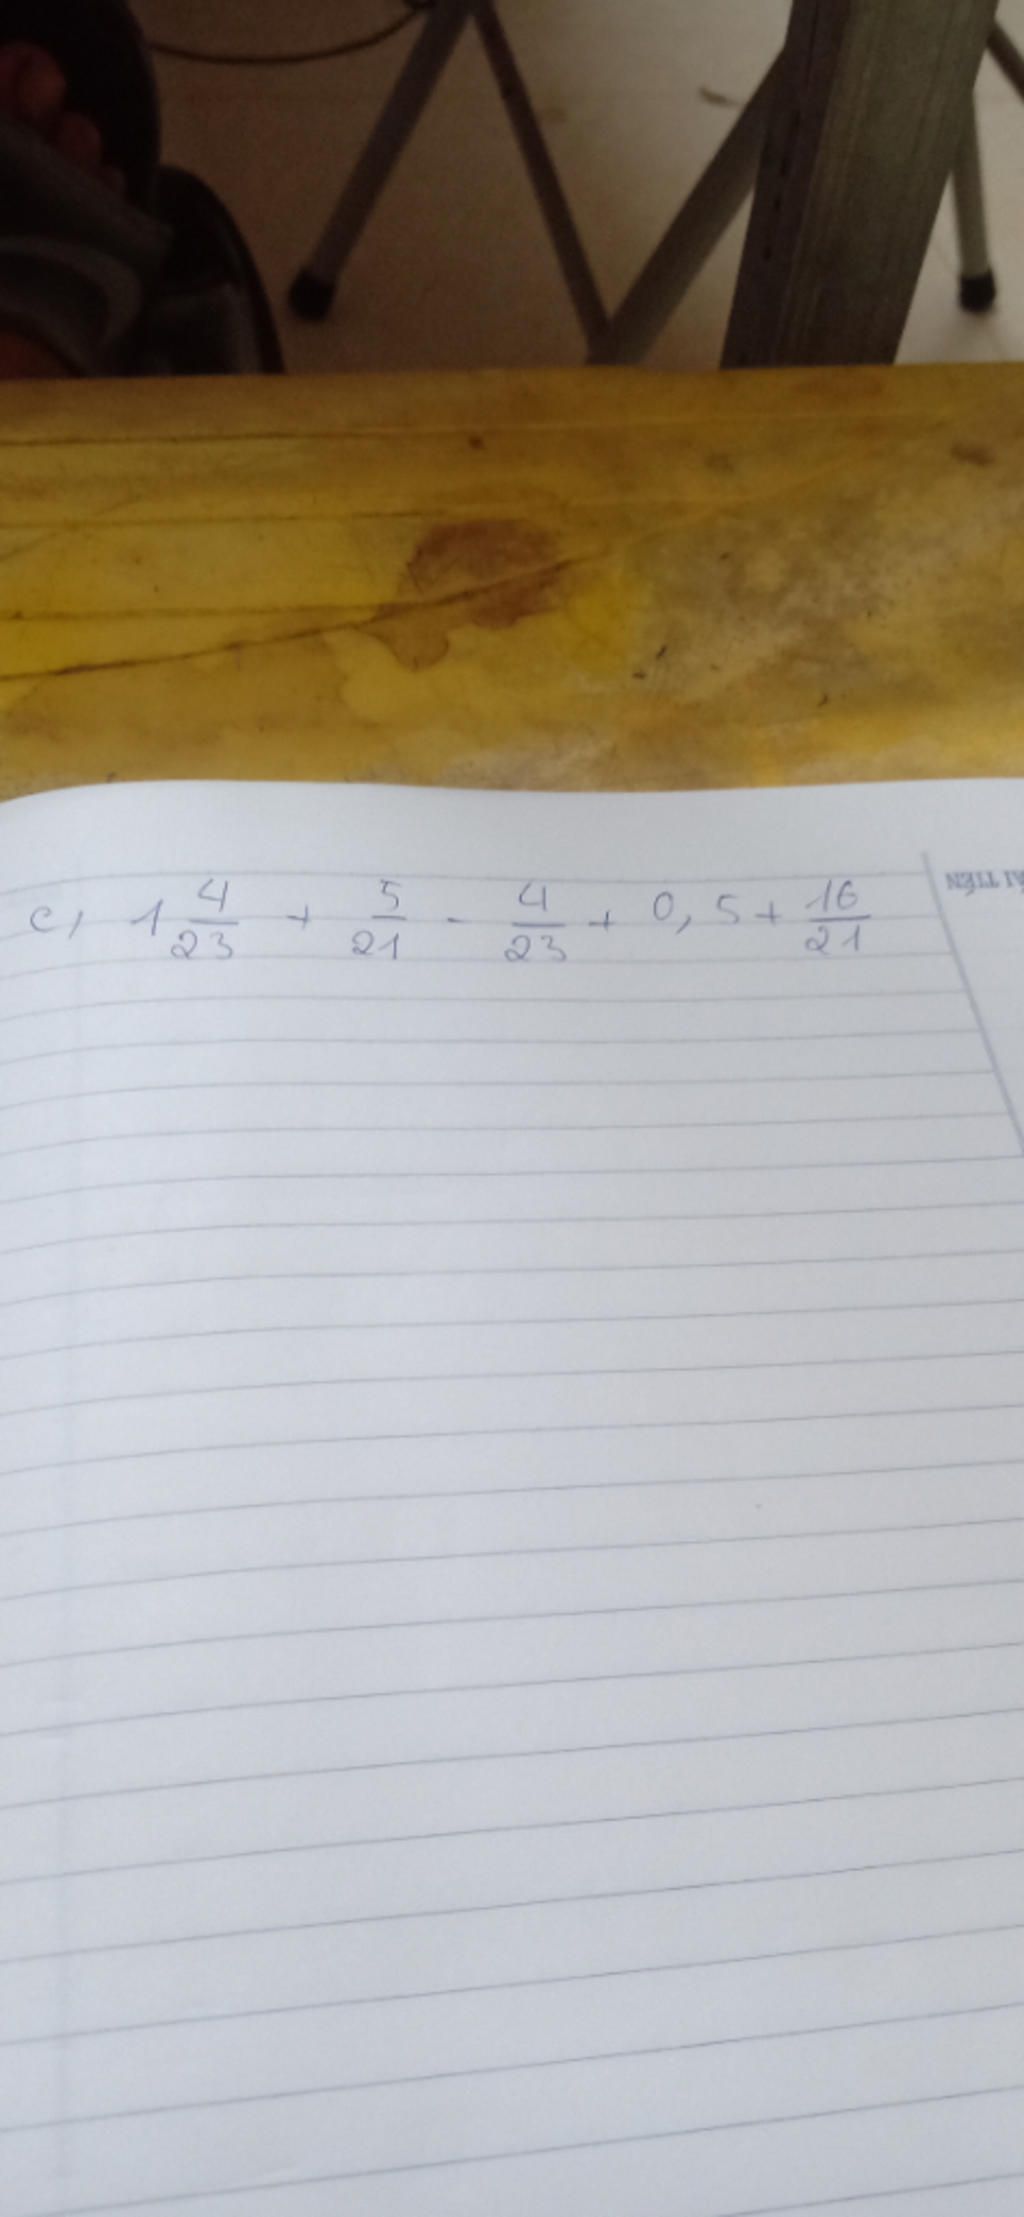 c, 1 4/23 + 5/21 - 4/23 + 0,5 + 16/21
TIẾN